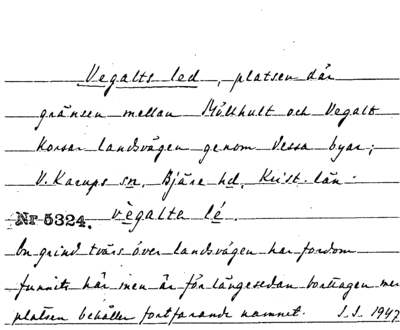 Vegalts led, platsen där
gränsen mellan Möllhult och Vegalt
korsar landsvägen genom dessa byar;
V. Karups sn, Bjäre hd, Krist. län.
Nr 5324. vègalta lé.
En grind tvärs över landsvägen har fordom
funnits här men är för längesedan borttagen men
platsen behåller fortfarande namnet. I.I. 1947